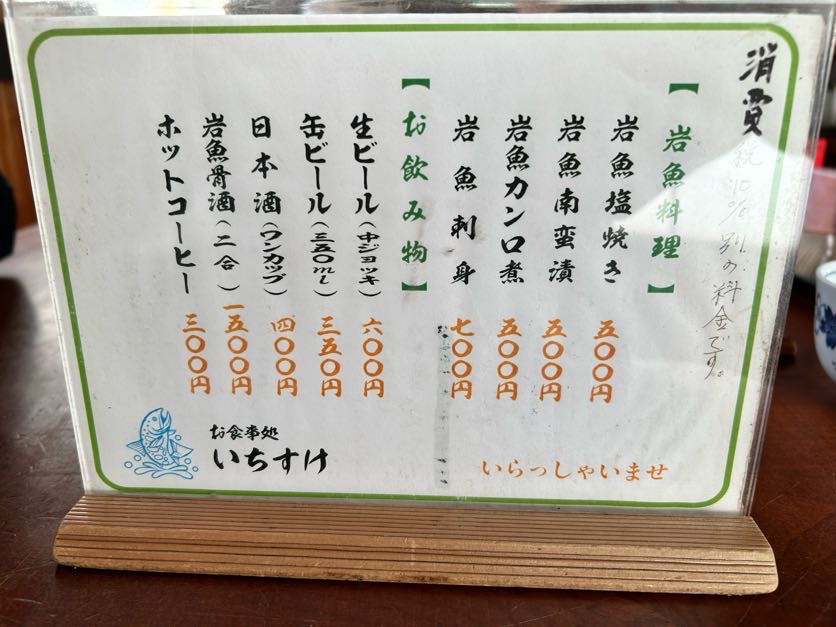 消費税10%別の料金です。
【岩魚料理】
岩魚塩焼き 五〇〇円
岩魚南蛮漬 五〇〇円
岩魚カンロ煮 五〇〇円
岩魚刺身 七〇〇円
【お飲み物】
生ビール(中ジョッキ) 六〇〇円
缶ビール(三五〇ml) 三五〇円
日本酒(ワンカップ) 四〇〇円
岩魚骨酒(二合) 一五〇〇円
ホットコーヒー 三〇〇円
いらっしゃいませ
お食事処
いちすけ